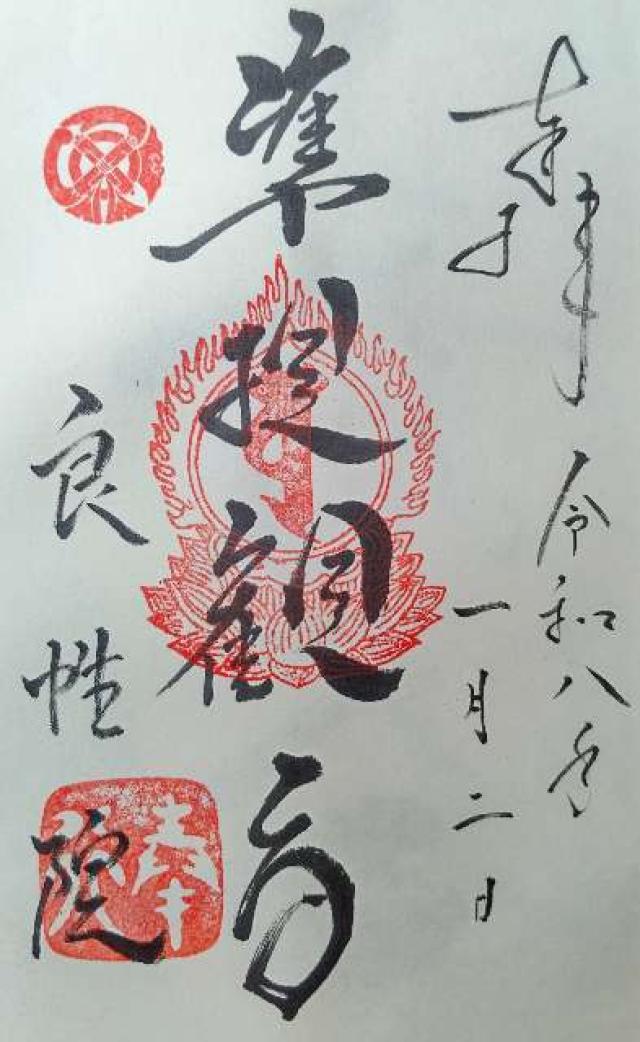 奉拝
令和八年
一月二日
準提観音
良性院